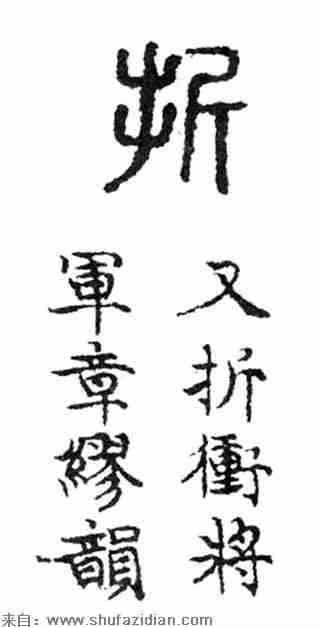 折
又折衝將
軍章繆韻
来自：www.shufazidian.com